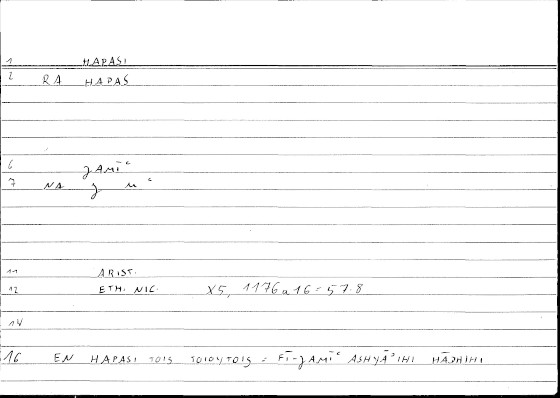 1 HAPASI
2 RA HAPAS
6 ǧAMĪʿ
7 NA ǧ M ʿ
11 ARIST.
12 ETH. NIC. X5, 1176a16 = 57.8
14
16 EN HAPASI TOIS TOIOYTOIS = FĪ-ǧAMĪʿ ASHYĀʾIHI HĀDHIHI